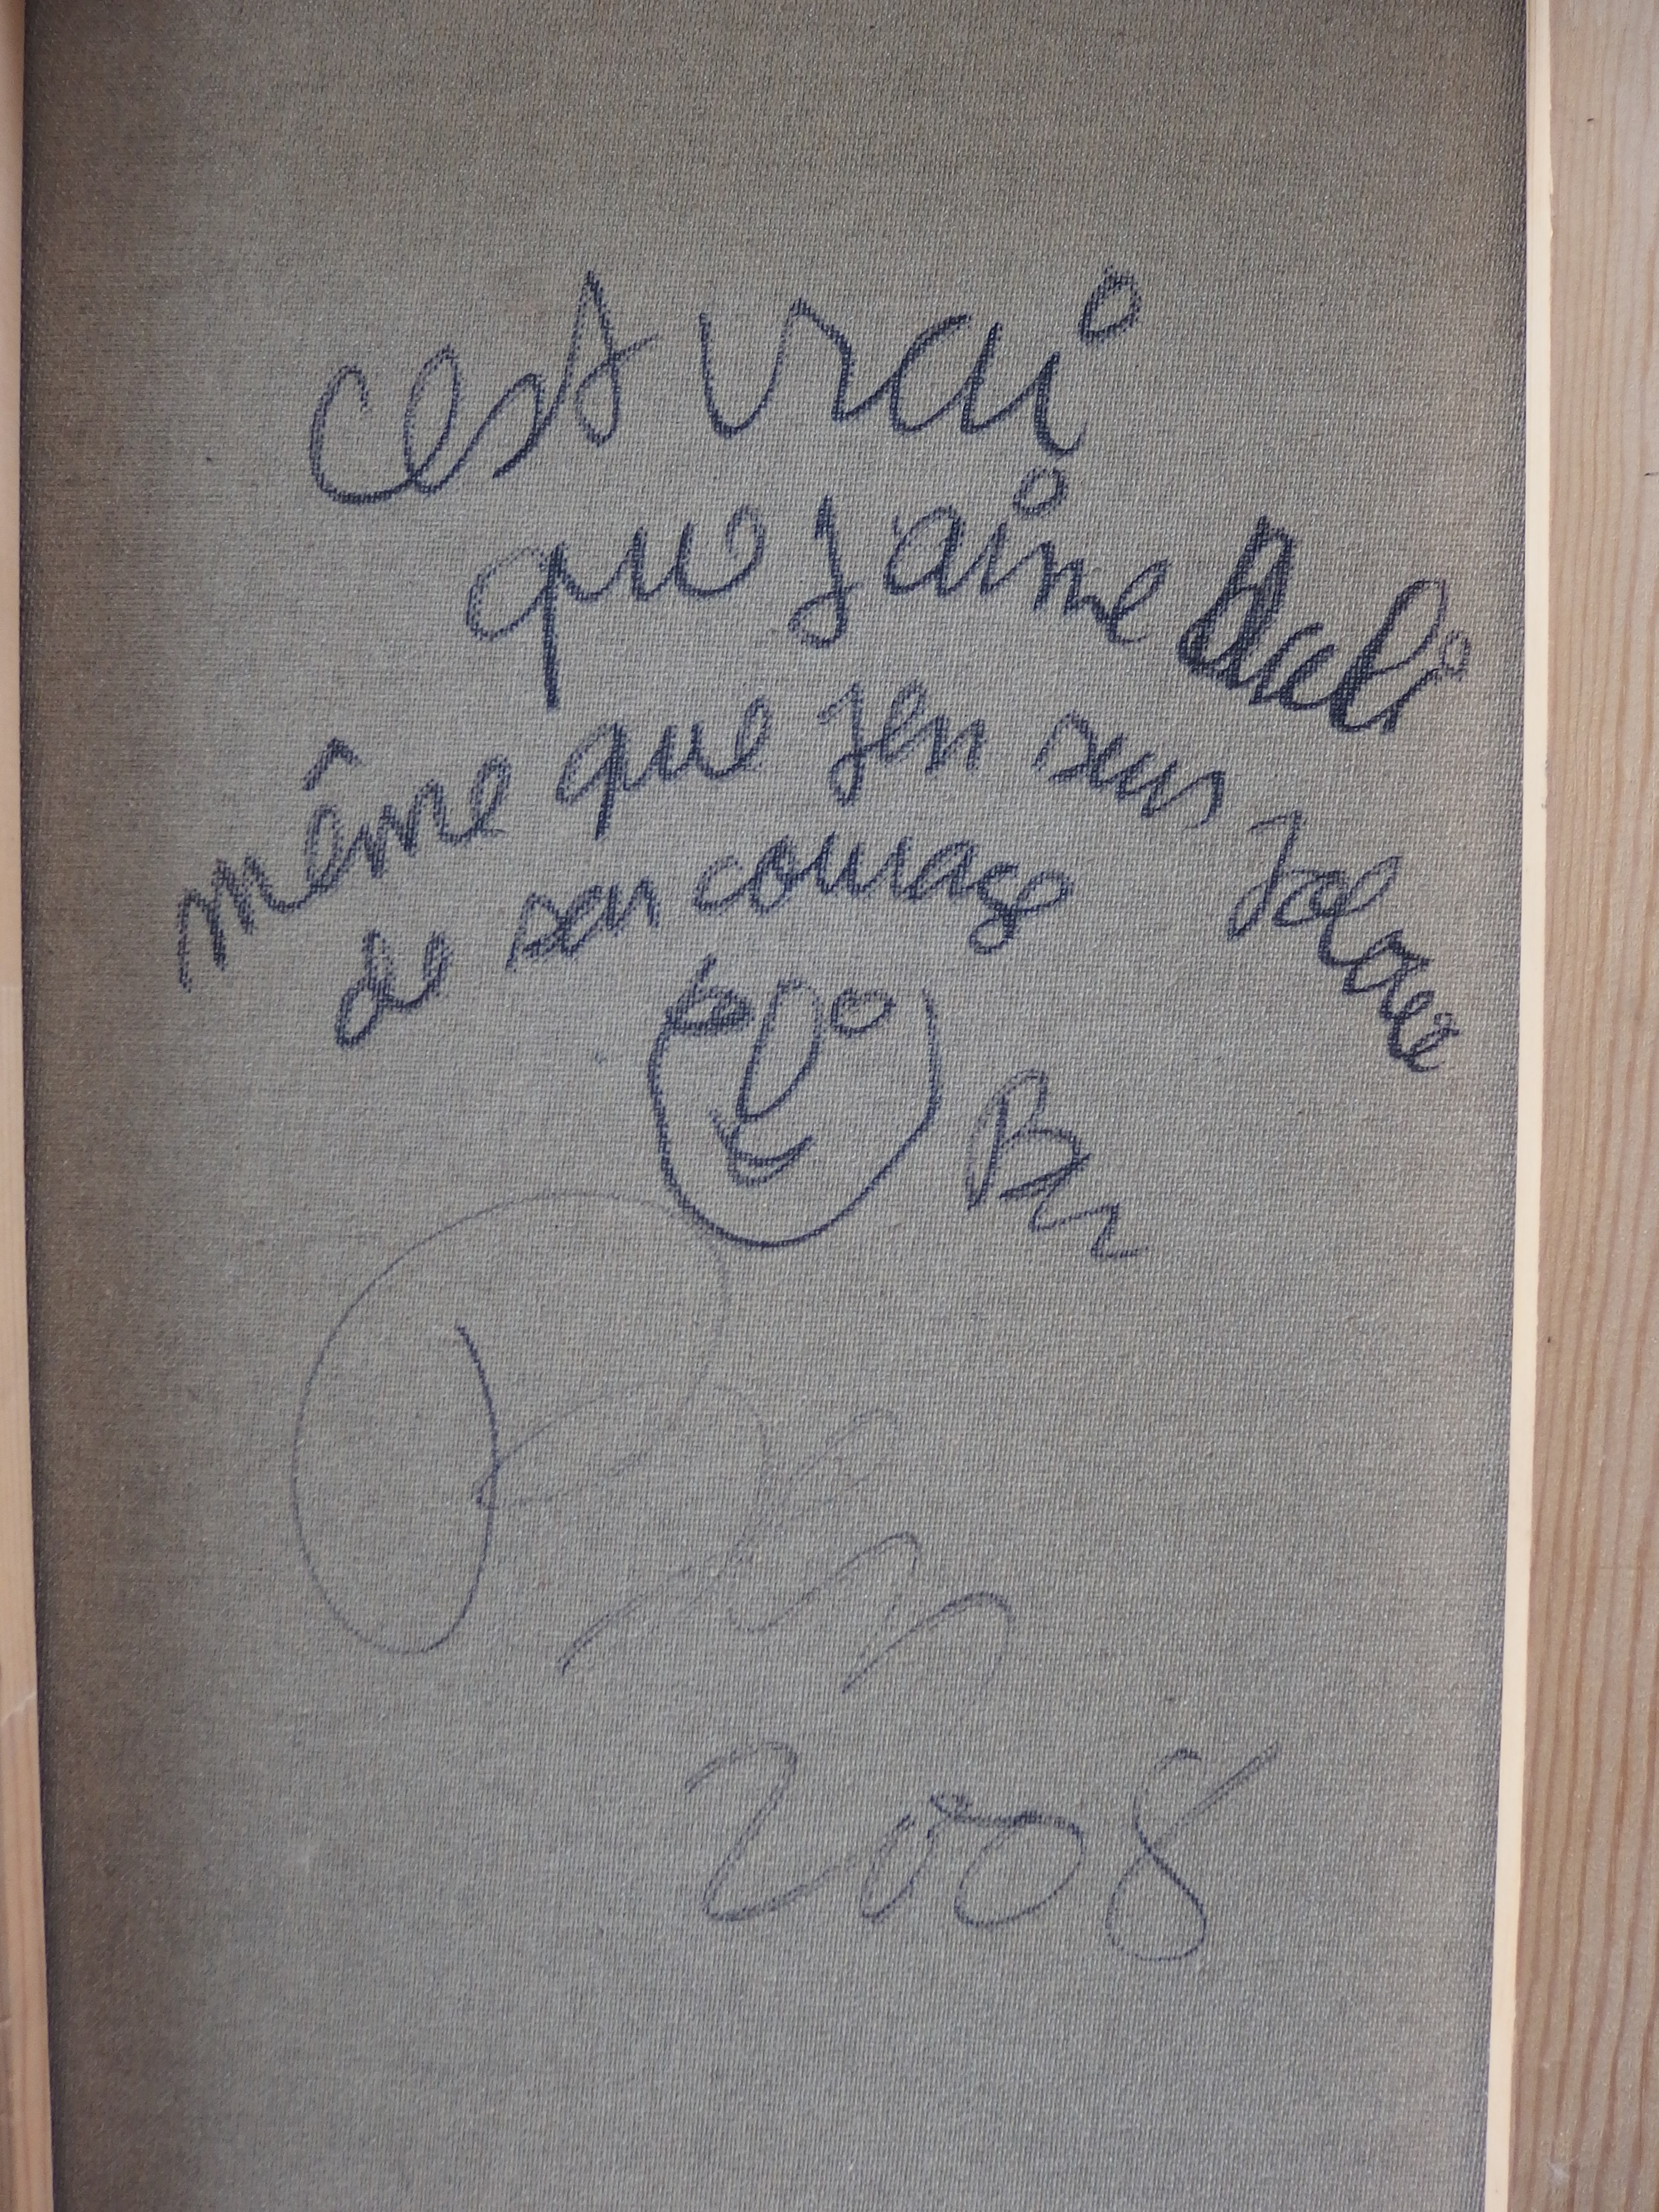 cest vrai
que j aime Dali
même que jen suis jaloux
de son courage
Ben
2008